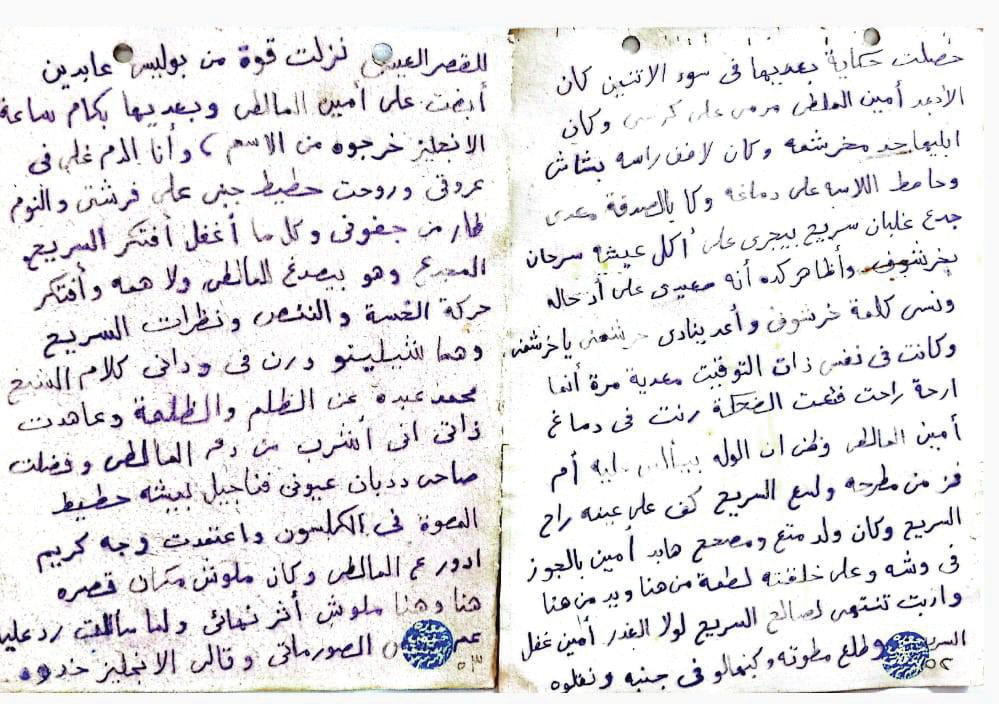 حصلت حكاية بعديها فى سوء الاتنين كان
الأبعد أمين المالطى مرمى على كرسى وكان
ابليها حد مخرشمه وكان لافف راسه بشاش
وحاطط اللاسه على دماغه وكا بالصدفة معدى
جدع غلبان سريح بيجرى على أكل عيشه سرحان
بخرشوف وأظاهر كده أنه صعيدى على أد حاله
ونسى كلمة خرشوف وأعد ينادى خرشفنى ياخرشفنى
وكانت فى نفس ذات التوقيت معدية مرة أنها
ارحة راحت فقعت الضحكة رنت فى دماغ
أمين المالطى وظن ان الوله بيألس عليه أم
فز من مطرحه ولسع السريح كف على عينه راح
السريح وكان ولد متع ومصحح هابد أمين بالجوز
فى وشه وعلى خلقته لطعة من هنا ويد من هنا
وازبت تنتهى لصالح السريح لولا الغدر أمين غفل
السريح وطلع مطوته وكبنهالو فى جنبه ونقلوه
٥٢
للقصر العينى نزلت قوة من بوليس عابدين
أبضت على أمين المالطى وبعديها بكام ساعة
الانجليز خرجوه من الاسم ، وأنا الدم غلى فى
عروقى وروحت حطيط جنبى على فرشتى والنوم
طار من جفونى وكل ما أغفل أفتكر السريح
المجدع وهو بيصدغ المالطى ولا همه وأفتكر
حركة الخسة والنقص ونظرات السريح
وهما شيلينو ورن فى ودانى كلام الشيخ
محمد عبده عن الظلم والظلمة وعاهدت
ذاتى انى أشرب من دم المالطى وفضلت
صاحى ددبان عيونى فناجيل لعيشه حطيط
القصوة فى الكلسون واعتمدت وجه كريم
ادور ع المالطى وكان ملوش مكان قصره
هنا وهنا ملوش أثر نهائى ولما سألت رد عليا
عم الصورماتى وقالى الانجليز خدوه
٥٣